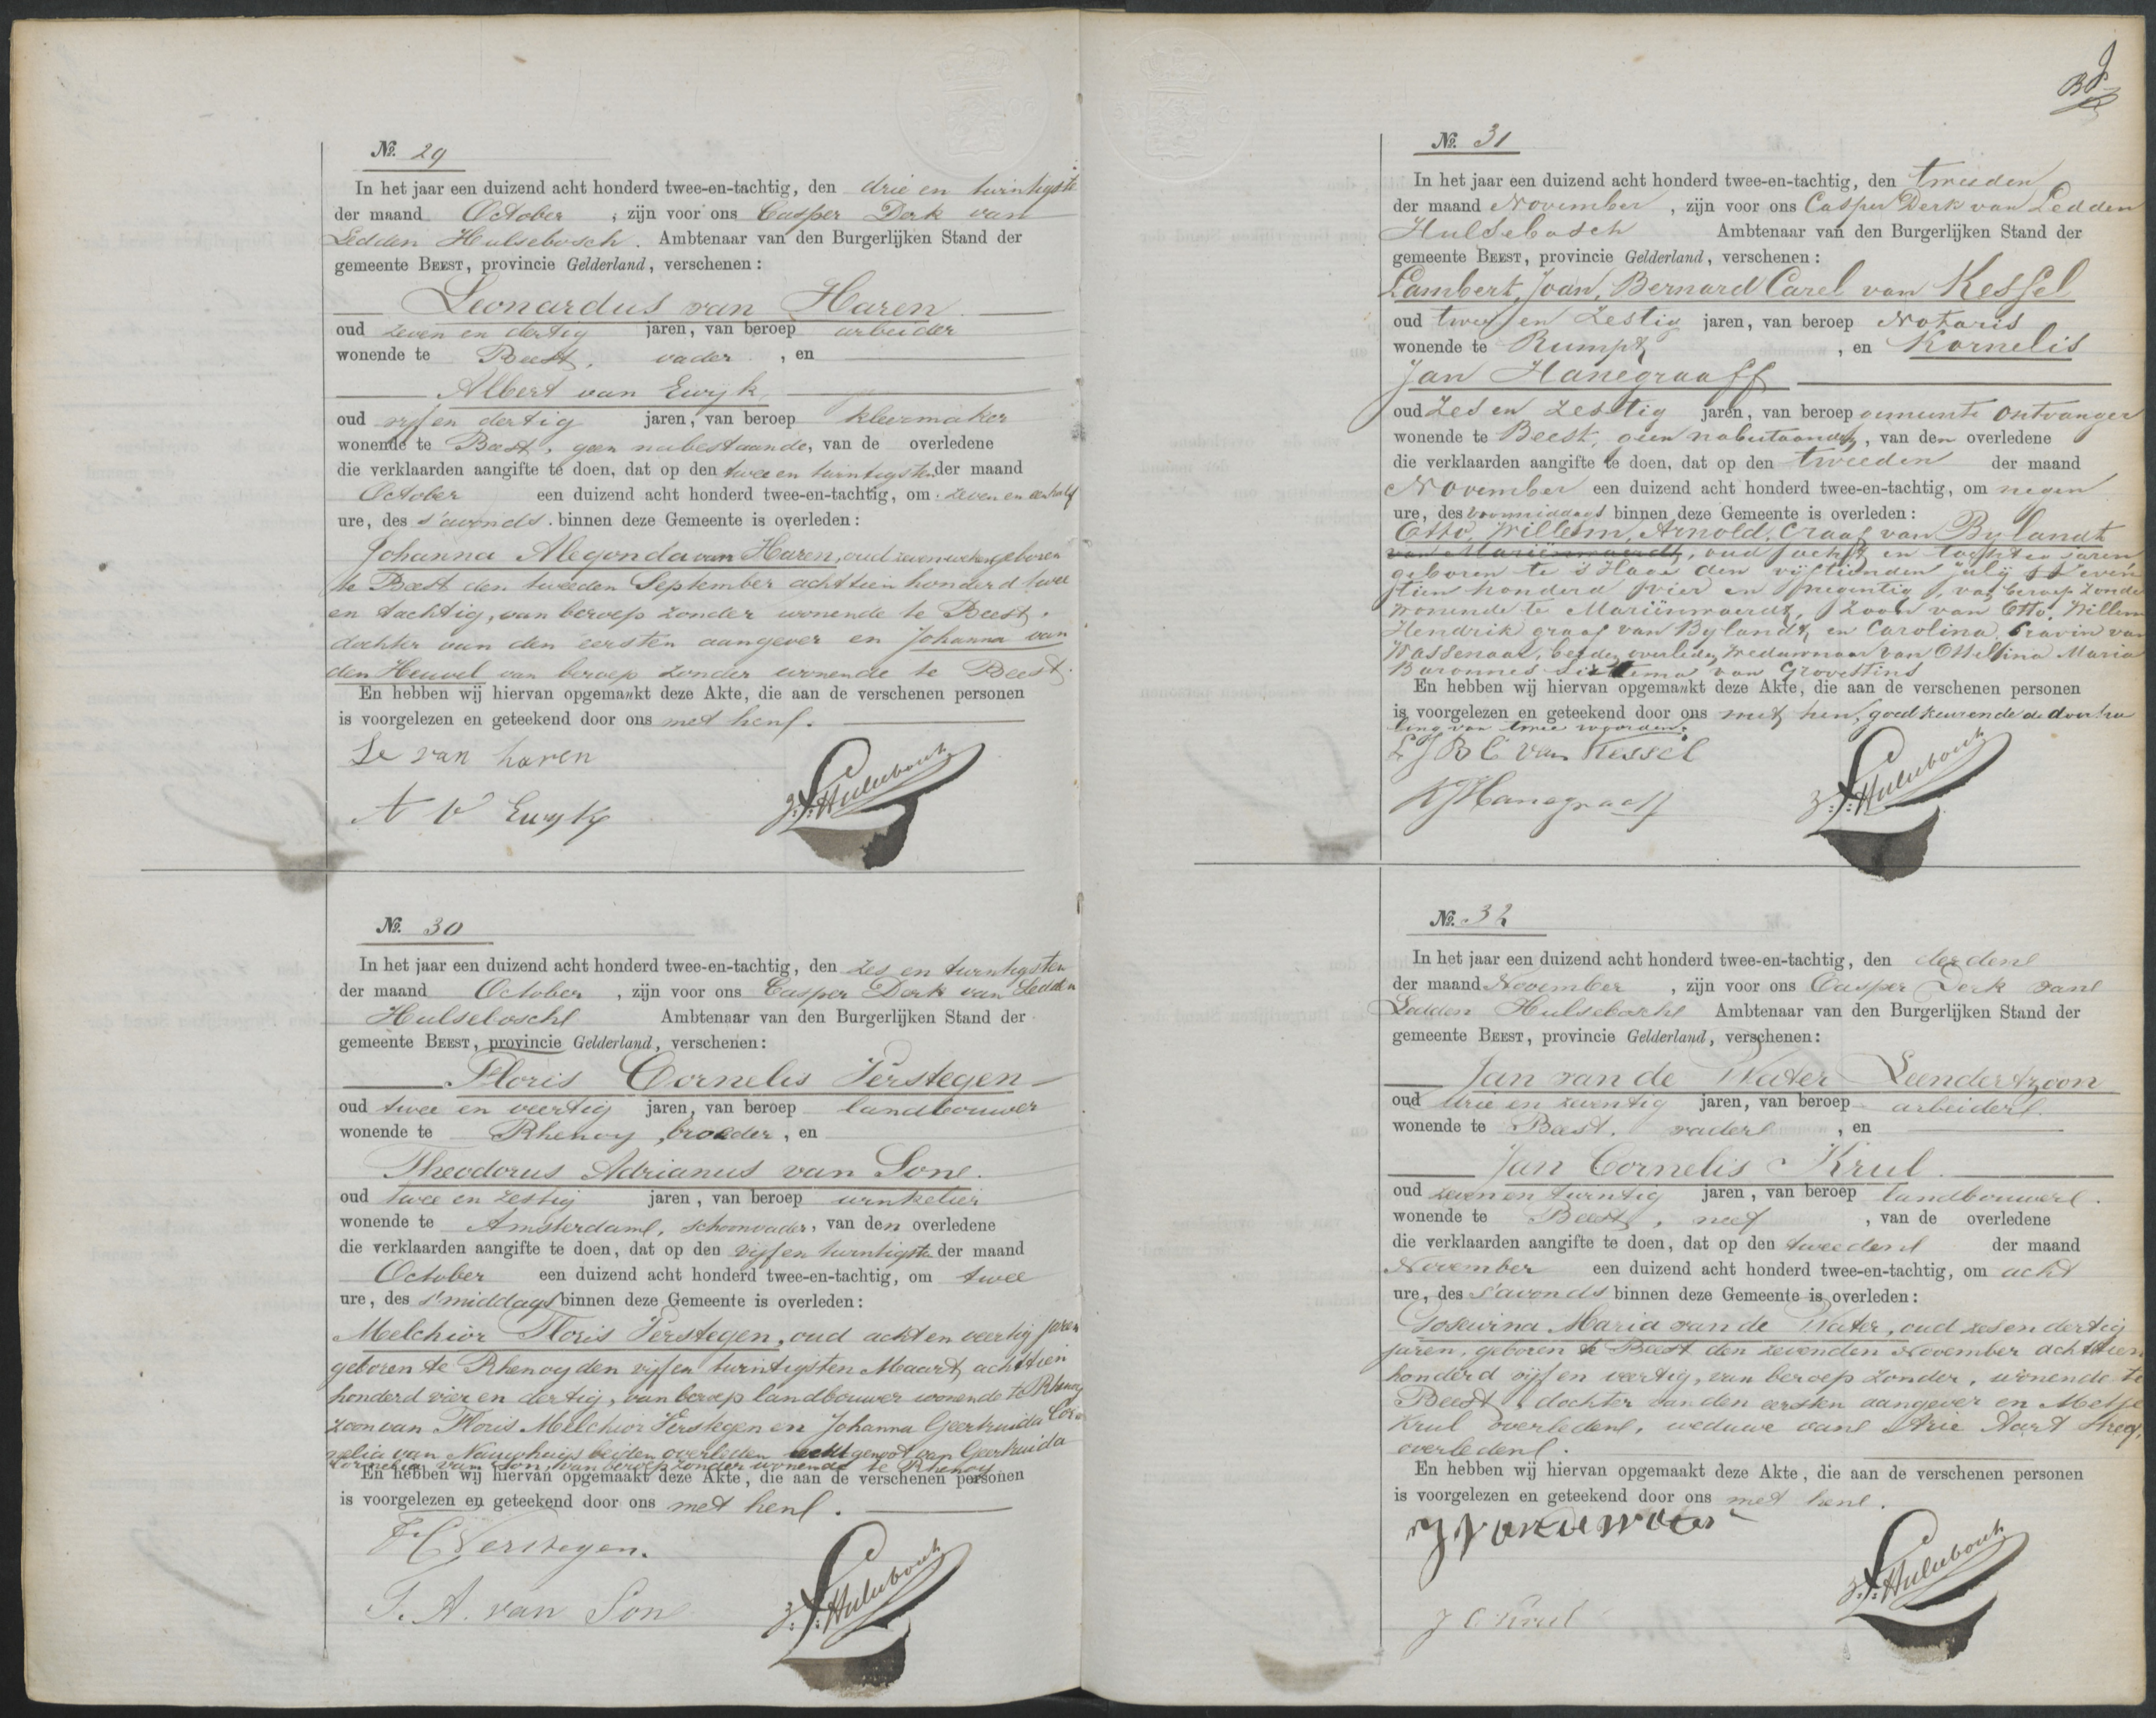 No. 29
In het jaar een duizend acht honderd twee-en-tachtig, den drie en twintigste
der maand October, zijn voor ons Casper Derk van
Ledden Hulsebosch. Ambtenaar van den Burgerlijken Stand der
gemeente BEEST, provincie Gelderland, verschenen:
Leonardus van Haren
oud zeven en dertig jaren, van beroep arbeider
wonende te Beest, vader, en
Albert van Ewijk,
oud vijf en dertig jaren, van beroep kleermaker
wonende te Beest, geen nabestaande, van de overledene
die verklaarden aangifte te doen, dat op den twee en twintigsten der maand
October een duizend acht honderd twee-en-tachtig, om zeven en een half
ure, des s'avonds. binnen deze Gemeente is overleden:
Johanna Alegonda van Haren, oud zeven weken geboren
te Beest den tweeden September achttien honderd twee
en tachtig, van beroep zonder wonende te Beest,
dochter van den eersten aangever en Johanna van
den Heuvel van beroep zonder wonende te Beest.
En hebben wij hiervan opgemaakt deze Akte, die aan de verschenen personen
is voorgelezen en geteekend door ons met hen.
Le van haren
A V Ewyk
Hulsebosch
No. 30
In het jaar een duizend acht honderd twee-en-tachtig, den zes en twintigsten
der maand October, zijn voor ons Casper Derk van Ledden
Hulsebosch Ambtenaar van den Burgerlijken Stand der
gemeente BEEST, provincie Gelderland, verschenen:
Floris Cornelis Verstegen
oud twee en veertig jaren, van beroep landbouwer
wonende te Rhenoy, broeder, en
Theodorus Adrianus van Son.
oud twee en zestig jaren, van beroep winkelier
wonende te Amsterdam, schoonvader, van den overledene
die verklaarden aangifte te doen, dat op den vijf en twintigsten der maand
October een duizend acht honderd twee-en-tachtig, om twee
ure, des s'middags binnen deze Gemeente is overleden:
Melchior Floris Verstegen, oud acht en veertig jaren
geboren te Rhenoy den vijf en twintigsten Maart achttien
honderd vier en dertig, van beroep landbouwer wonende te Rhenoy
zoon van Floris Melchior Verstegen en Johanna Geertruida Cor
nelia van Nauwhuijs beiden overleden echtgenoot van Geertruida
Cornelia van Son van beroep zonder wonende te Rhenoy
En hebben wij hiervan opgemaakt deze Akte, die aan de verschenen personen
is voorgelezen en geteekend door ons met hen.
F C Verstegen.
T. A. van Son
Hulsebosch
No. 31
In het jaar een duizend acht honderd twee-en-tachtig, den tweeden
der maand November, zijn voor ons Casper Derk van Ledden
Hulsebosch Ambtenaar van den Burgerlijken Stand der
gemeente BEEST, provincie Gelderland, verschenen:
Lambert, Joan, Bernard Carel van Kessel
oud twee en zestig jaren, van beroep Notaris
wonende te Rumpt, en Kornelis
Jan Hanegraaff
oud Zes en zestig jaren, van beroep gemeente ontvanger
wonende te Beest, geen nabestaanden, van den overledene
die verklaarden aangifte te doen, dat op den tweeden der maand
November een duizend acht honderd twee-en-tachtig, om negen
ure, des voormiddags binnen deze Gemeente is overleden:
Otto, Willem, Arnold, Graaf van Bylandt
van Mariënwaerdt, oud acht en tachtig jaren
geboren te 's Hage den vijftienden july zeven
tien honderd vier en negentig, van beroep zonder
wonende te Mariënwaerdt, zoon van Otto, Willem
Hendrik graaf van Bylandt, en Carolina Gravin van
Wassenaar, beiden overleden, weduwnaar van Ottelina Maria
Baronnes Sirtema van Grovestins
En hebben wij hiervan opgemaakt deze Akte, die aan de verschenen personen
is voorgelezen en geteekend door ons met hen, goedkeurende de doorha
ling van twee woorden.
L J B C van Kessel
K J Hanegraaff
Hulsebosch
No. 32
In het jaar een duizend acht honderd twee-en-tachtig, den derden
der maand November, zijn voor ons Casper Derk van
Ledden Hulsebosch Ambtenaar van den Burgerlijken Stand der
gemeente BEEST, provincie Gelderland, verschenen:
Jan van de Water Leendertzoon
oud drie en zeventig jaren, van beroep arbeider
wonende te Beest, vader, en
Jan Cornelis Krul
oud zeven en twintig jaren, van beroep landbouwer.
wonende te Beest, neef, van de overledene
die verklaarden aangifte te doen, dat op den tweeden der maand
November een duizend acht honderd twee-en-tachtig, om acht
ure, des s'avonds binnen deze Gemeente is overleden:
Goswina Maria van de Water, oud zes en dertig
jaren, geboren te Beest den zevenden November achttien
honderd vijf en veertig, van beroep zonder, wonende te
Beest, dochter van den eersten aangever en Metje
Krul overleden, weduwe van Arie Aart
overleden.
En hebben wij hiervan opgemaakt deze Akte, die aan de verschenen personen
is voorgelezen en geteekend door ons met hen.
J van de Water
J C Krul
Hulsebosch